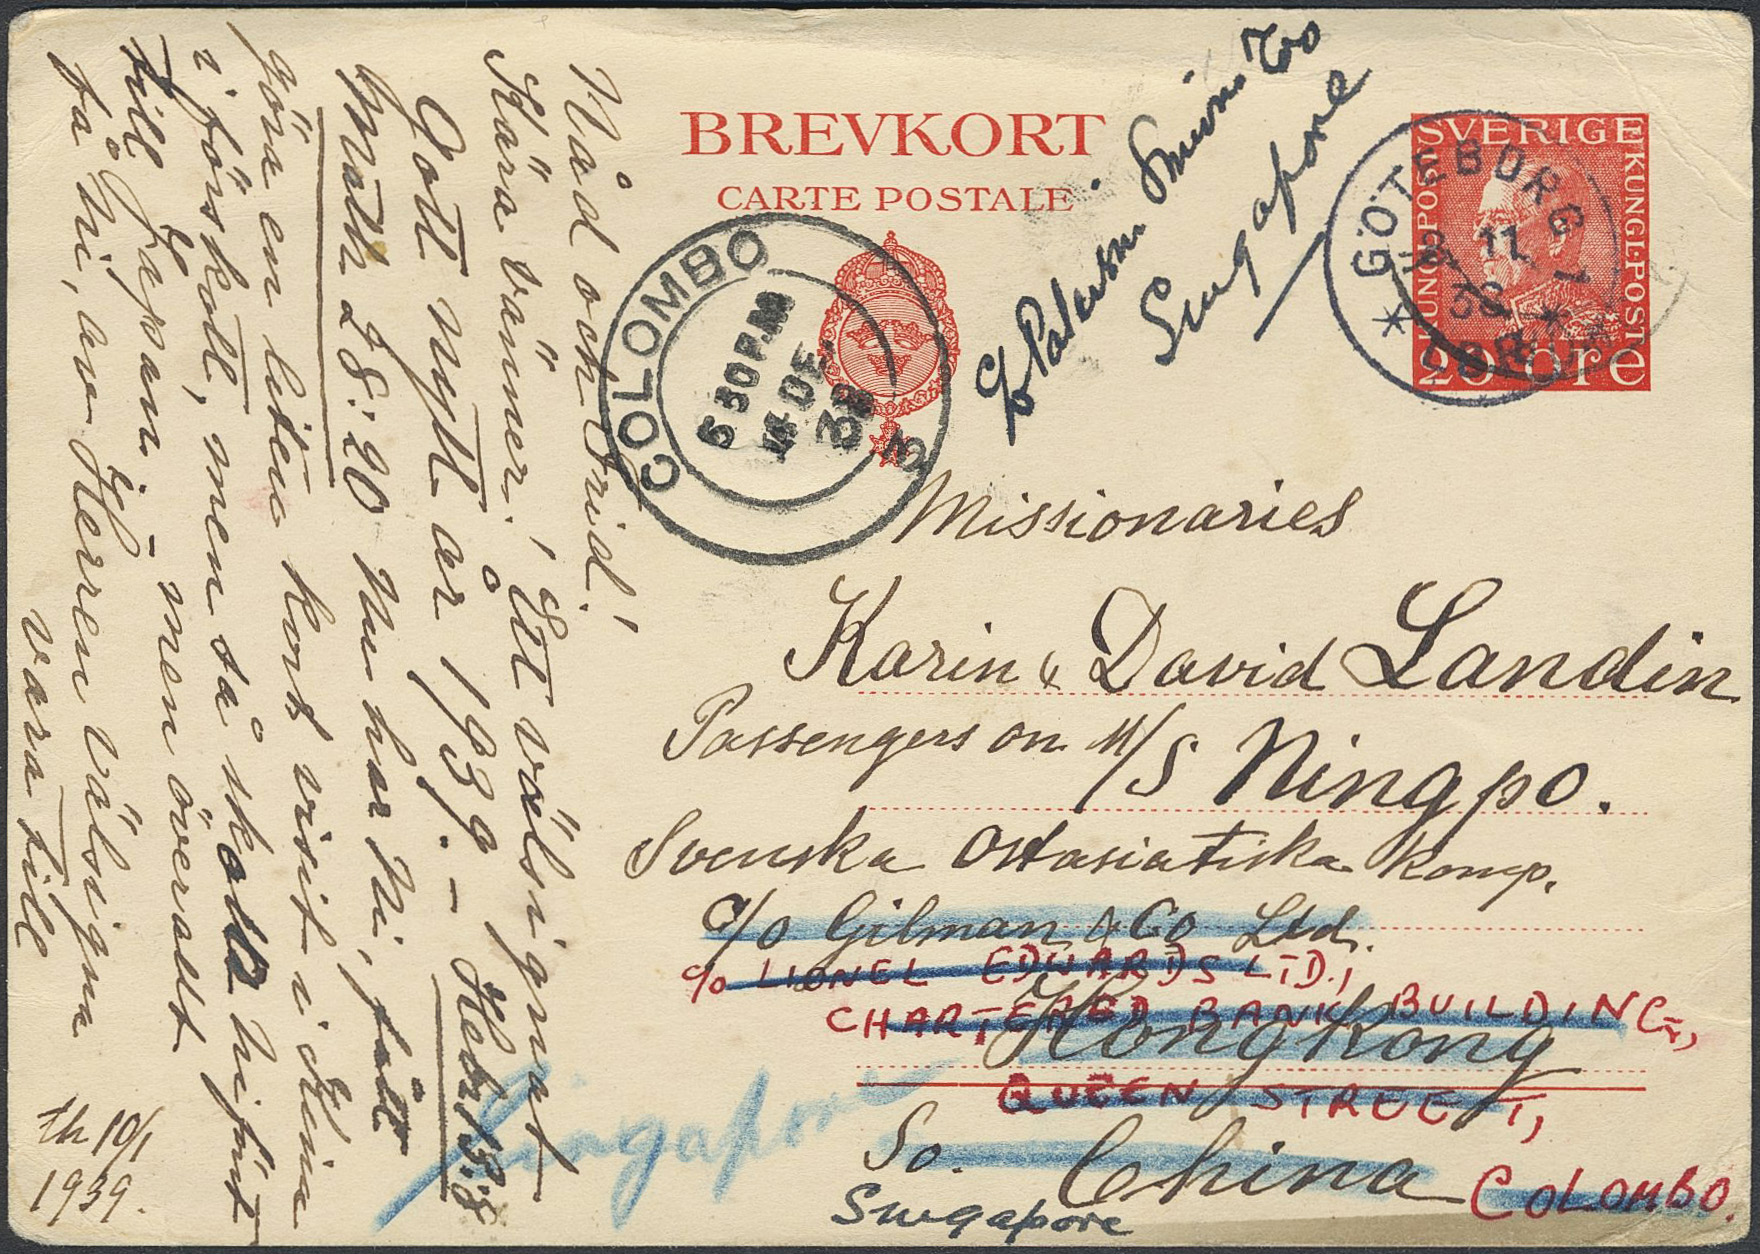 BREVKORT
CARTE POSTALE
SVERIGE
KUNGL·POST
KUNGL·POST
20 ÖRE
GÖTEBORG
11
38
COLOMBO
5 30 P.M
14 DE
38
Singapore
Missionaries
Karin & David Landin
Passengers on M/S Ningpo.
Svenska Ostasiatiska Komp.
c/o Gilman & Co Ltd.
c/o LIONEL EDWARDS LTD.,
CHARTERED BANK BUILDING,
Hongkong
QUEEN STREET,
So. China
COLOMBO.
Singapore
Singapore
Nåd och Frid!
Kära vänner! Ett välsignat
Gott nytt år 1939. – Hebr 13:8
Matt 28:20 Nu har Ni, fått
göra en liten kort visit i Kina
i förskott, men så skola ni först
till Japan – men överallt
få Ni, av Herren välsigna
vara till
10/1
1939.